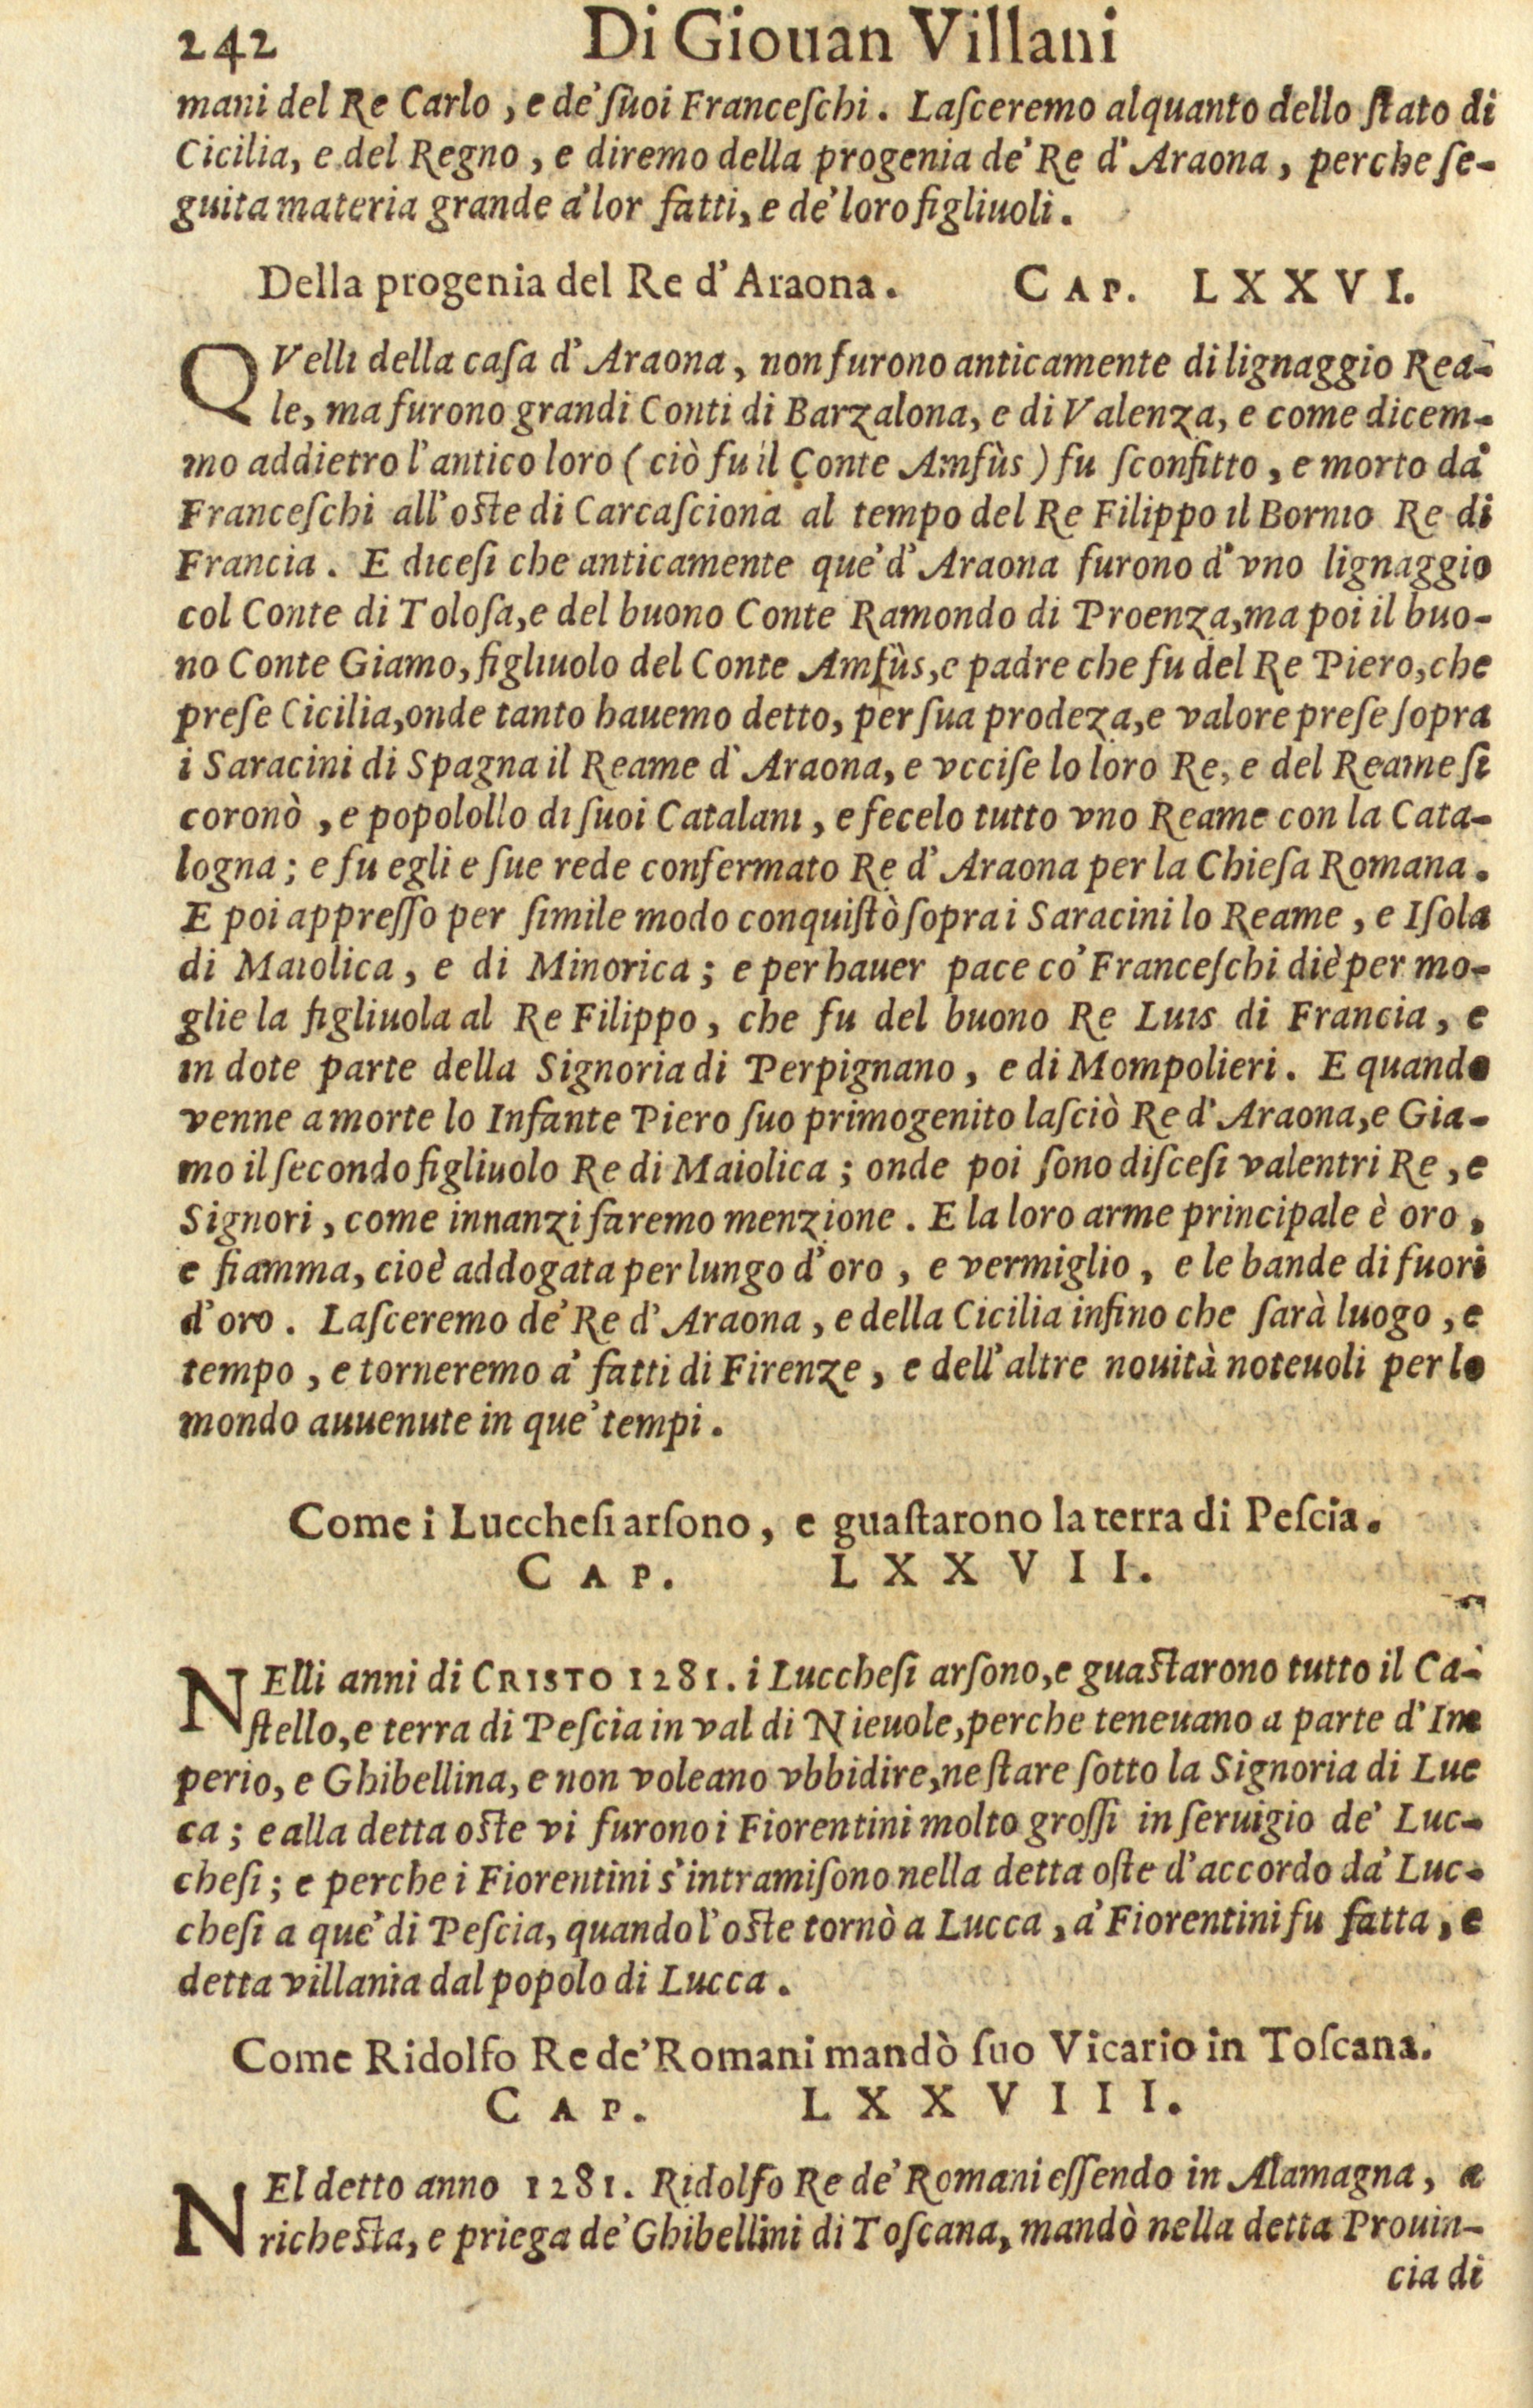 242 Di Giouan Villani
mani del Re Carlo, e de' ſuoi Franceſchi. Laſceremo alquanto dello ſtato di
Cicilia, e del Regno, e diremo della progenia de' Re d'Araona, perche ſe-
guita materia grande a' lor fatti, e de' loro figliuoli.
Della progenia del Re d'Araona. CAP. LXXVI.
QVelli della caſa d'Araona, non furono anticamente di lignaggio Rea-
le, ma furono grandi Conti di Barzalona, e di Valenza, e come dicem-
mo addietro l'antico loro (ciò fu il Conte Amfùs) fu ſconfitto, e morto da'
Franceſchi all'oſte di Carcaſciona al tempo del Re Filippo il Bornio Re di
Francia. E diceſi che anticamente que' d'Araona furono d'vno lignaggio
col Conte di Toloſa, e del buono Conte Ramondo di Proenza, ma poi il buo-
no Conte Giamo, figliuolo del Conte Amfùs, e padre che fu del Re Piero, che
preſe Cicilia, onde tanto hauemo detto, per ſua prodeza, e valore preſe ſopra
i Saracini di Spagna il Reame d'Araona, e vcciſe lo loro Re, e del Reame ſi
coronò, e popolollo di ſuoi Catalani, e fecelo tutto vno Reame con la Cata-
logna; e fu egli e ſue rede confermato Re d'Araona per la Chieſa Romana.
E poi appreſſo per ſimile modo conquiſtò ſopra i Saracini lo Reame, e Iſola
di Maiolica, e di Minorica; e per hauer pace co' Franceſchi diè per mo-
glie la figliuola al Re Filippo, che fu del buono Re Luis di Francia, e
in dote parte della Signoria di Perpignano, e di Mompolieri. E quando
venne a morte lo Infante Piero ſuo primogenito laſciò Re d'Araona, e Gia-
mo il ſecondo figliuolo Re di Maiolica; onde poi ſono diſceſi valentri Re, e
Signori, come innanzi faremo menzione. E la loro arme principale è oro,
e fiamma, cioè addogata per lungo d'oro, e vermiglio, e le bande di fuori
d'oro. Laſceremo de' Re d'Araona, e della Cicilia infino che ſarà luogo, e
tempo, e torneremo a' fatti di Firenze, e dell'altre nouità noteuoli per lo
mondo auuenute in que' tempi.
Come i Luccheſi arſono, e guaſtarono la terra di Peſcia.
CAP. LXXVII.
NElli anni di CRISTO 1281. i Luccheſi arſono, e guaſtarono tutto il Ca-
ſtello, e terra di Peſcia in val di Nieuole, perche teneuano a parte d'Im
perio, e Ghibellina, e non voleano vbbidire, ne ſtare ſotto la Signoria di Luc
ca; e alla detta oſte vi furono i Fiorentini molto groſſi in ſeruigio de' Luc-
cheſi; e perche i Fiorentini s'intramiſono nella detta oſte d'accordo da' Luc-
cheſi a que' di Peſcia, quando l'oſte tornò a Lucca, a' Fiorentini fu fatta, e
detta villania dal popolo di Lucca.
Come Ridolfo Re de' Romani mandò ſuo Vicario in Toſcana.
CAP. LXXVIII.
NEl detto anno 1281. Ridolfo Re de' Romani eſſendo in Alamagna, a
richeſta, e priega de' Ghibellini di Toſcana, mandò nella detta Prouin-
cia di